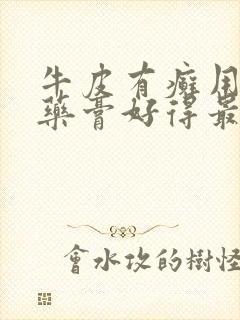 牛皮有癣用
藥膏好得最
會水攻的樹怪